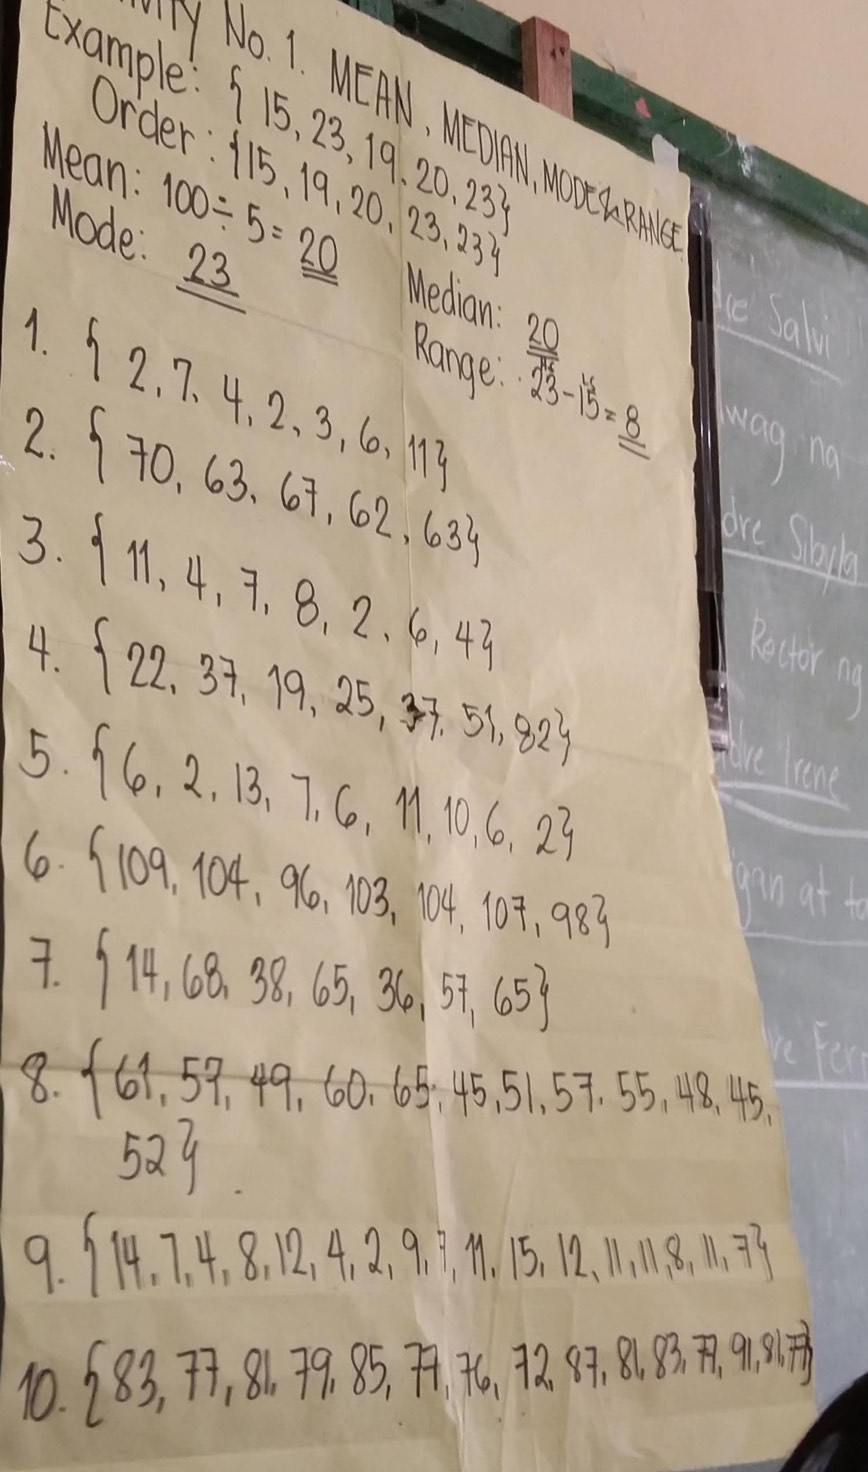 No. 1. MEAN, MEDIAN, MODE & RANGE
Example: { 15, 23, 19, 20, 23}
Order: {15, 19, 20, 23, 23}
Mean: 100 ÷ 5 = 20
Median: 20
Mode: 23
Range: 23 - 15 = 8
1. { 2, 7, 4, 2, 3, 6, 11}
2. { 70, 63, 67, 62, 63}
3. { 11, 4, 7, 8, 2, 6, 4}
4. { 22, 37, 19, 25, 37, 51, 82}
5. {6, 2, 13, 7, 6, 11, 10, 6, 2}
6. {109, 104, 96, 103, 104, 107, 98}
7. {14, 68, 38, 65, 36, 57, 65}
8. {61, 57, 49, 60, 65, 45, 51, 57, 55, 48, 45,
52}
9. {14, 7, 4, 8, 12, 4, 2, 9, 7, 11, 15, 12, 11, 11, 8, 11, 7}
10. {83, 77, 81, 79, 85, 77, 76, 72, 87, 81, 83, 77, 91, 81, 77}
Salvi
na
Sibyla
Rector ng
Irene
at